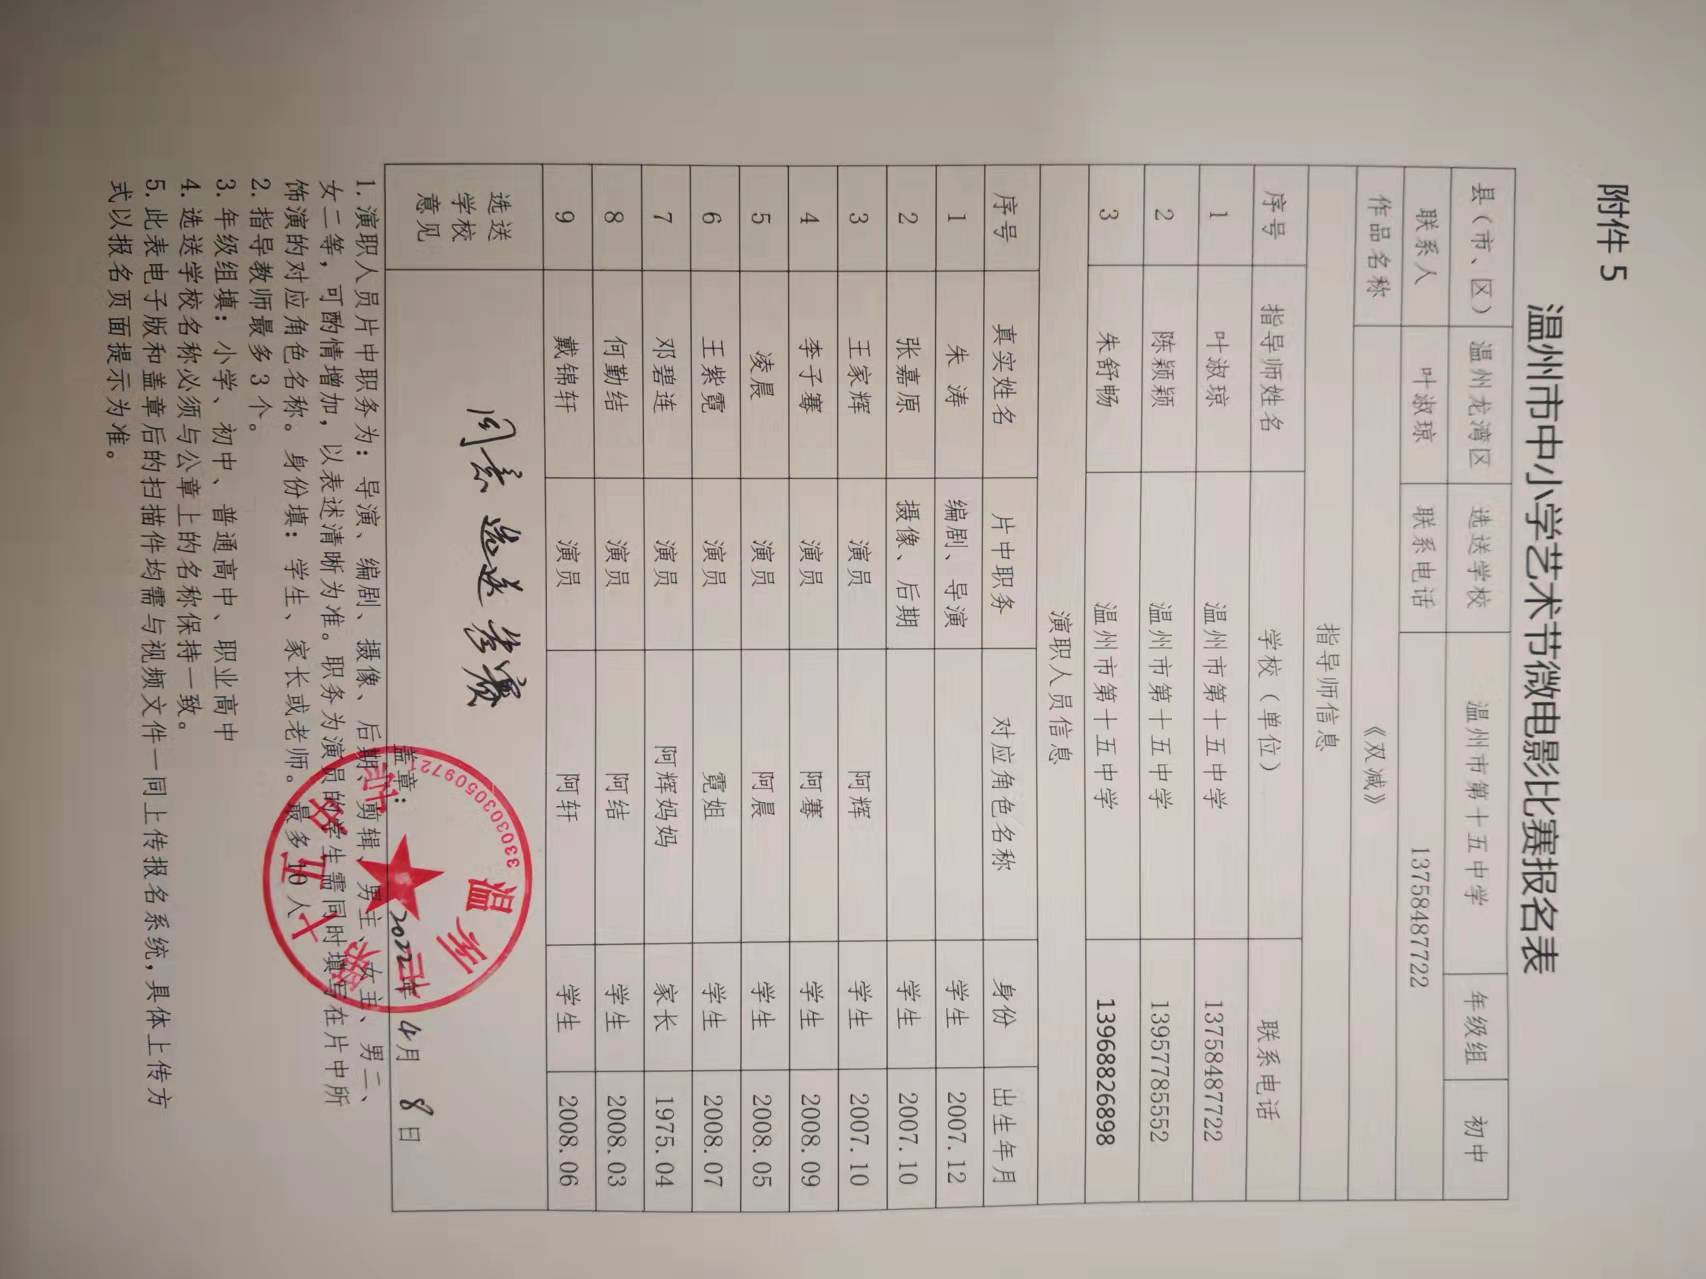 附件 5
温州市中小学艺术节微电影比赛报名表
县（市、区） 温州龙湾区 选送学校 温州市第十五中学 年级组 初中
联系人 叶淑琼 联系电话 13758487722
作品名称 《双减》
指导师信息
序号 指导师姓名 学校（单位） 联系电话
1 叶淑琼 温州市第十五中学 13758487722
2 陈颖颖 温州市第十五中学 13957785552
3 朱舒畅 温州市第十五中学 13968826898
演职人员信息
序号 真实姓名 片中职务 对应角色名称 身份 出生年月
1 朱涛 编剧、导演 学生 2007.12
2 张嘉原 摄像、后期 学生 2007.10
3 王家辉 演员 阿辉 学生 2007.10
4 李子骞 演员 阿骞 学生 2008.09
5 凌晨 演员 阿晨 学生 2008.05
6 王紫霓 演员 霓姐 学生 2008.07
7 邓碧连 演员 阿辉妈妈 家长 1975.04
8 何勤结 演员 阿结 学生 2008.03
9 戴锦轩 演员 阿轩 学生 2008.06
选送
学校
意见
同意选送参赛
盖章：
2022年 4月 8日
温州市第十五中学
3303030509721
1. 演职人员片中职务为：导演、编剧、摄像、后期、剪辑、男主、女主、男二、
女二等，可酌情增加，以表述清晰为准。职务为演员的学生需同时填写在片中所
饰演的对应角色名称。身份填：学生、家长或老师。最多10人
2. 指导教师最多 3 个。
3. 年级组填：小学、初中、普通高中、职业高中
4. 选送学校名称必须与公章上的名称保持一致。
5. 此表电子版和盖章后的扫描件均需与视频文件一同上传报名系统，具体上传方
式以报名页面提示为准。